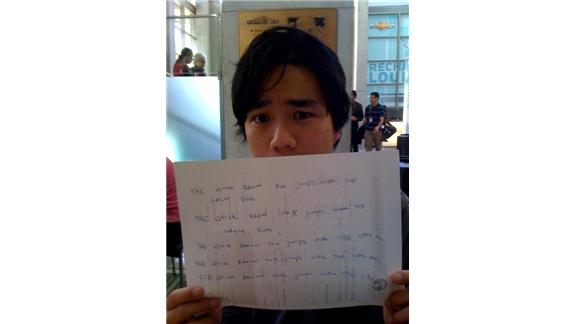 THE QUICK BROWN FOX JUMPS OVER THE
LAZY DOG
THE QUICK BROWN FOX JUMPS OVER THE
LAZY DOG.
THE QUICK BROWN FOX JUMPS OVER THE LAZY DOG
THE QUICK BROWN FOX JUMPS OVER THE LAZY DOG
THE QUICK BROWN FOX JUMPS OVER THE
CHEVROLET